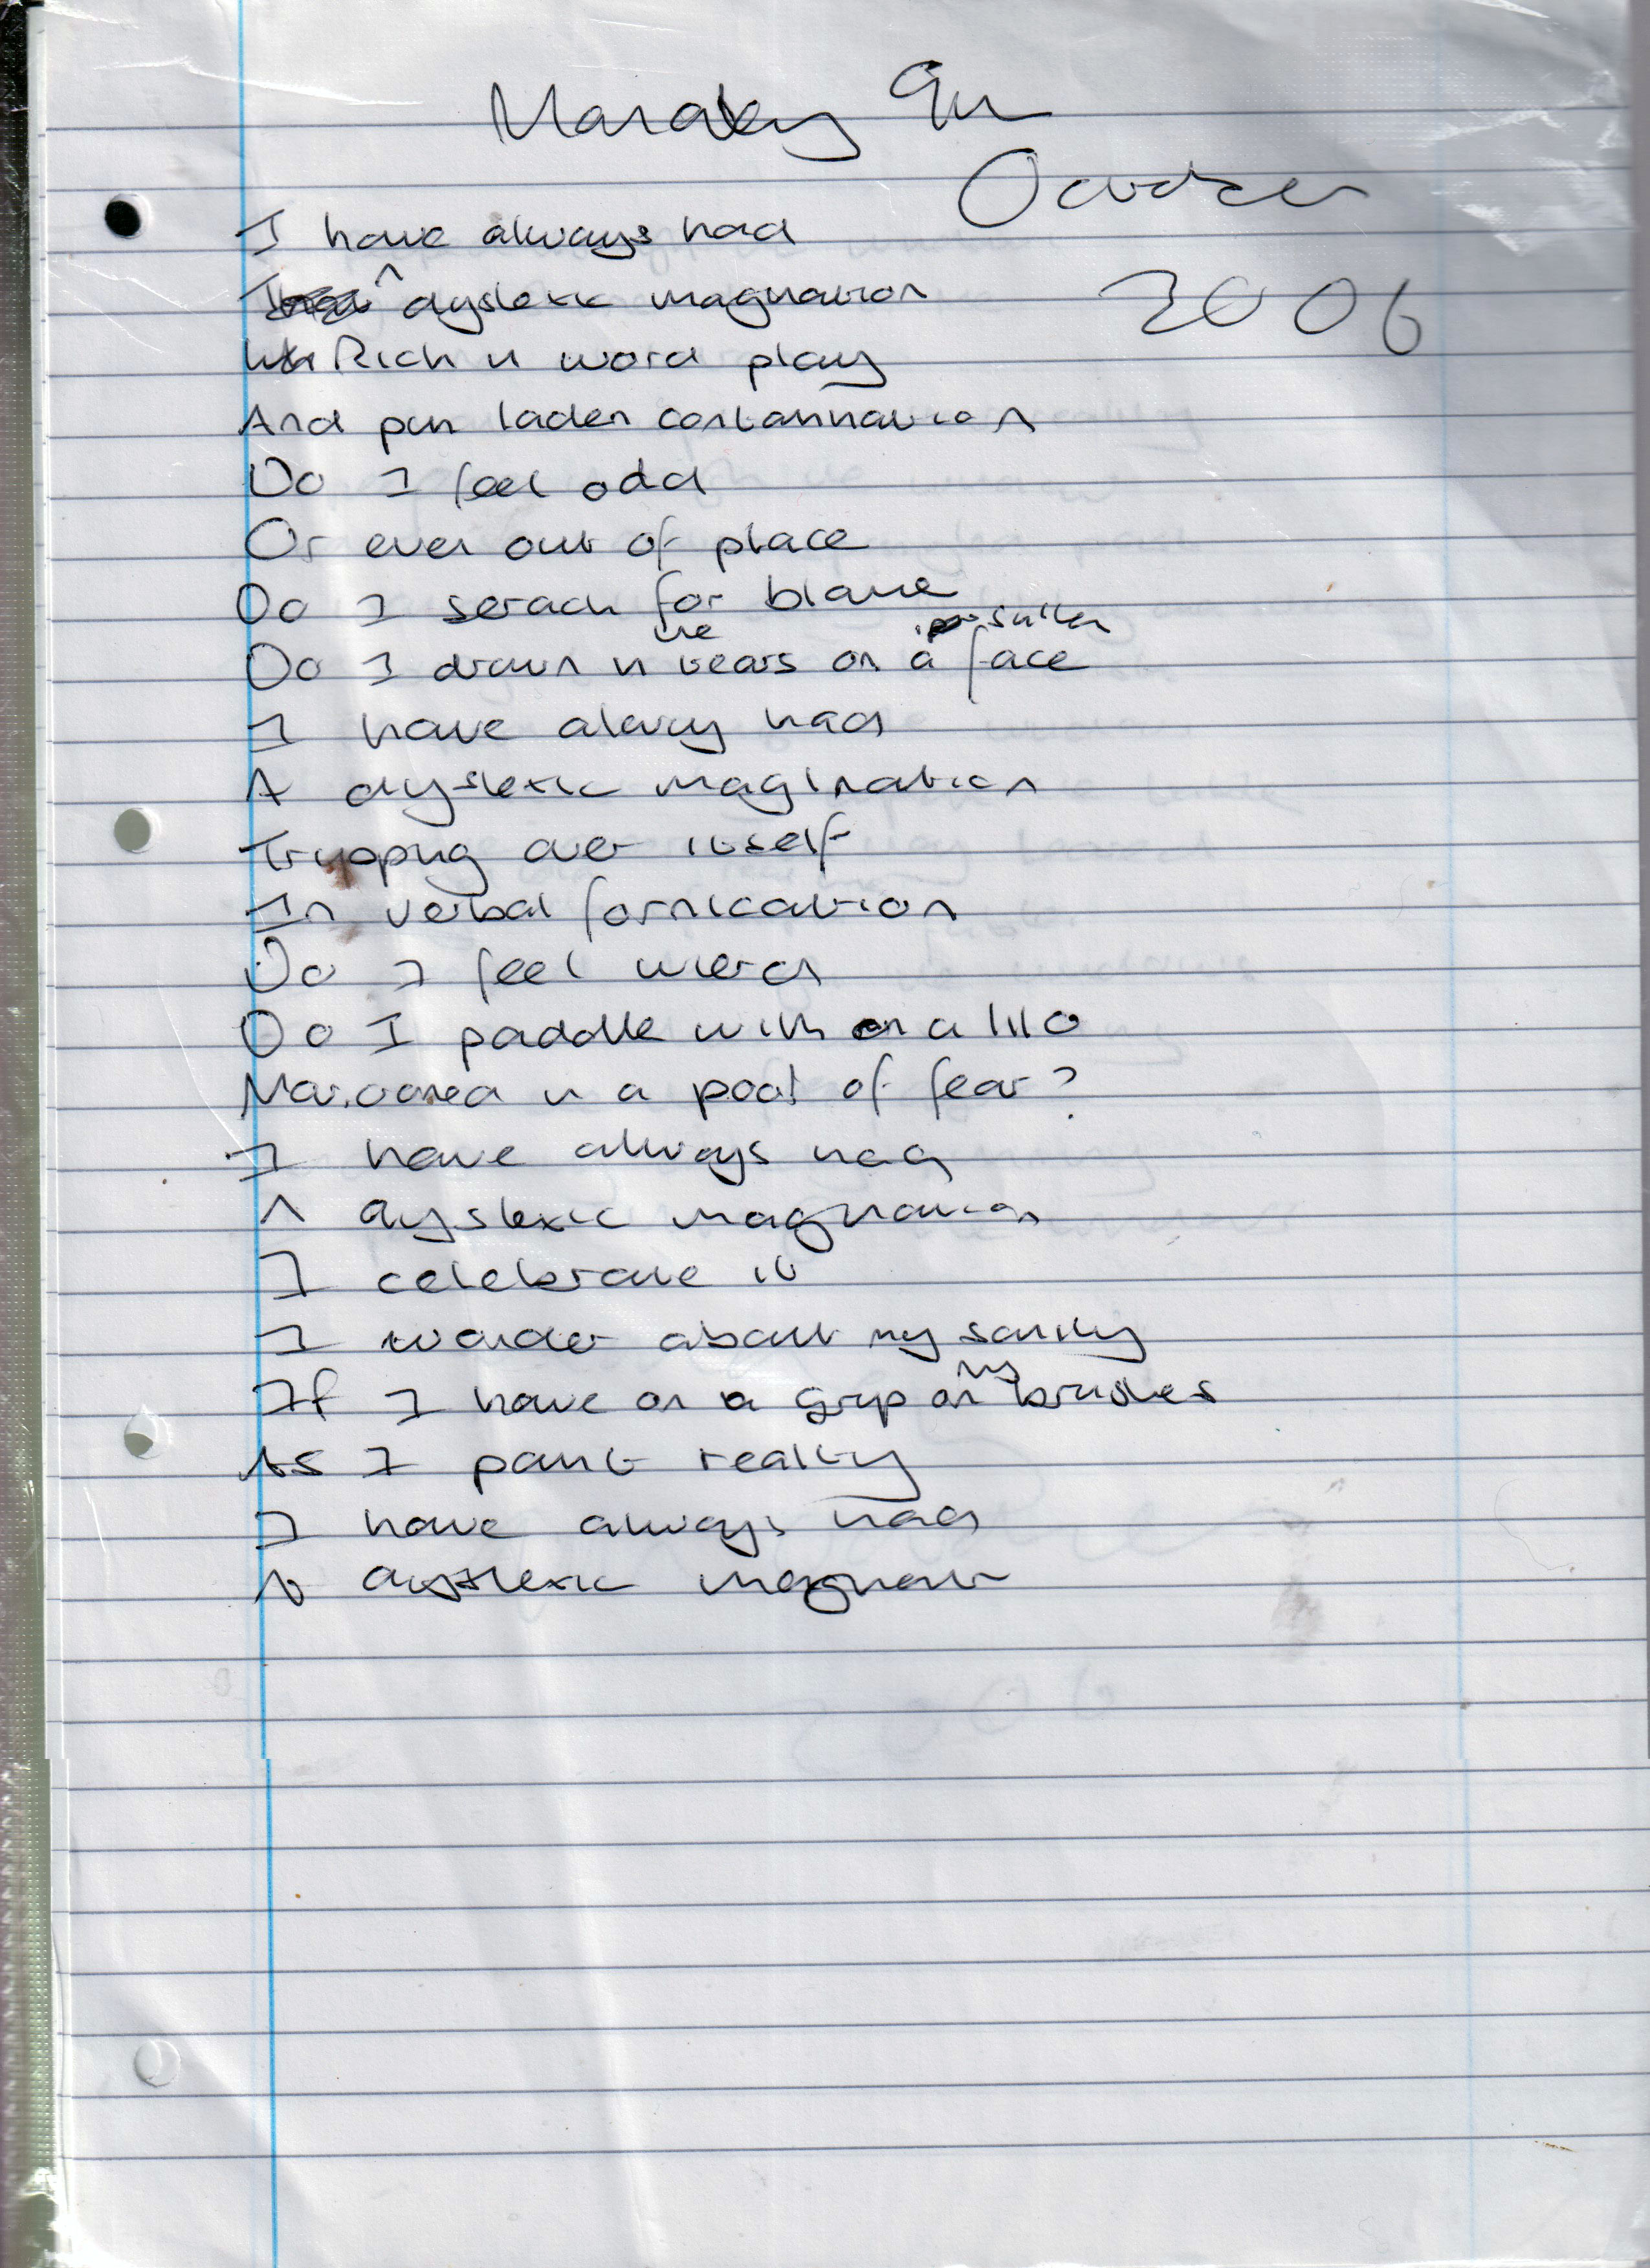 Monday 9th
October
2006
I have always had
A dyslexic magination
Rich n word play
And pun laden contamination
Do I feel odd
Or ever out of place
Do I serach for blame
Do I drawn n the tears on a sullen face
I have alway had
A dyslexic magination
Tripping over itself
In verbal fornication
Do I feel wierd
Do I paddle with on a lilo
Marooned in a pool of fear?
I have always had
A dyslexic magination
I celebrate it
I wonder about my sanity
If I have on a grip on my brushes
As I paint reality
I have always had
A dyslexic